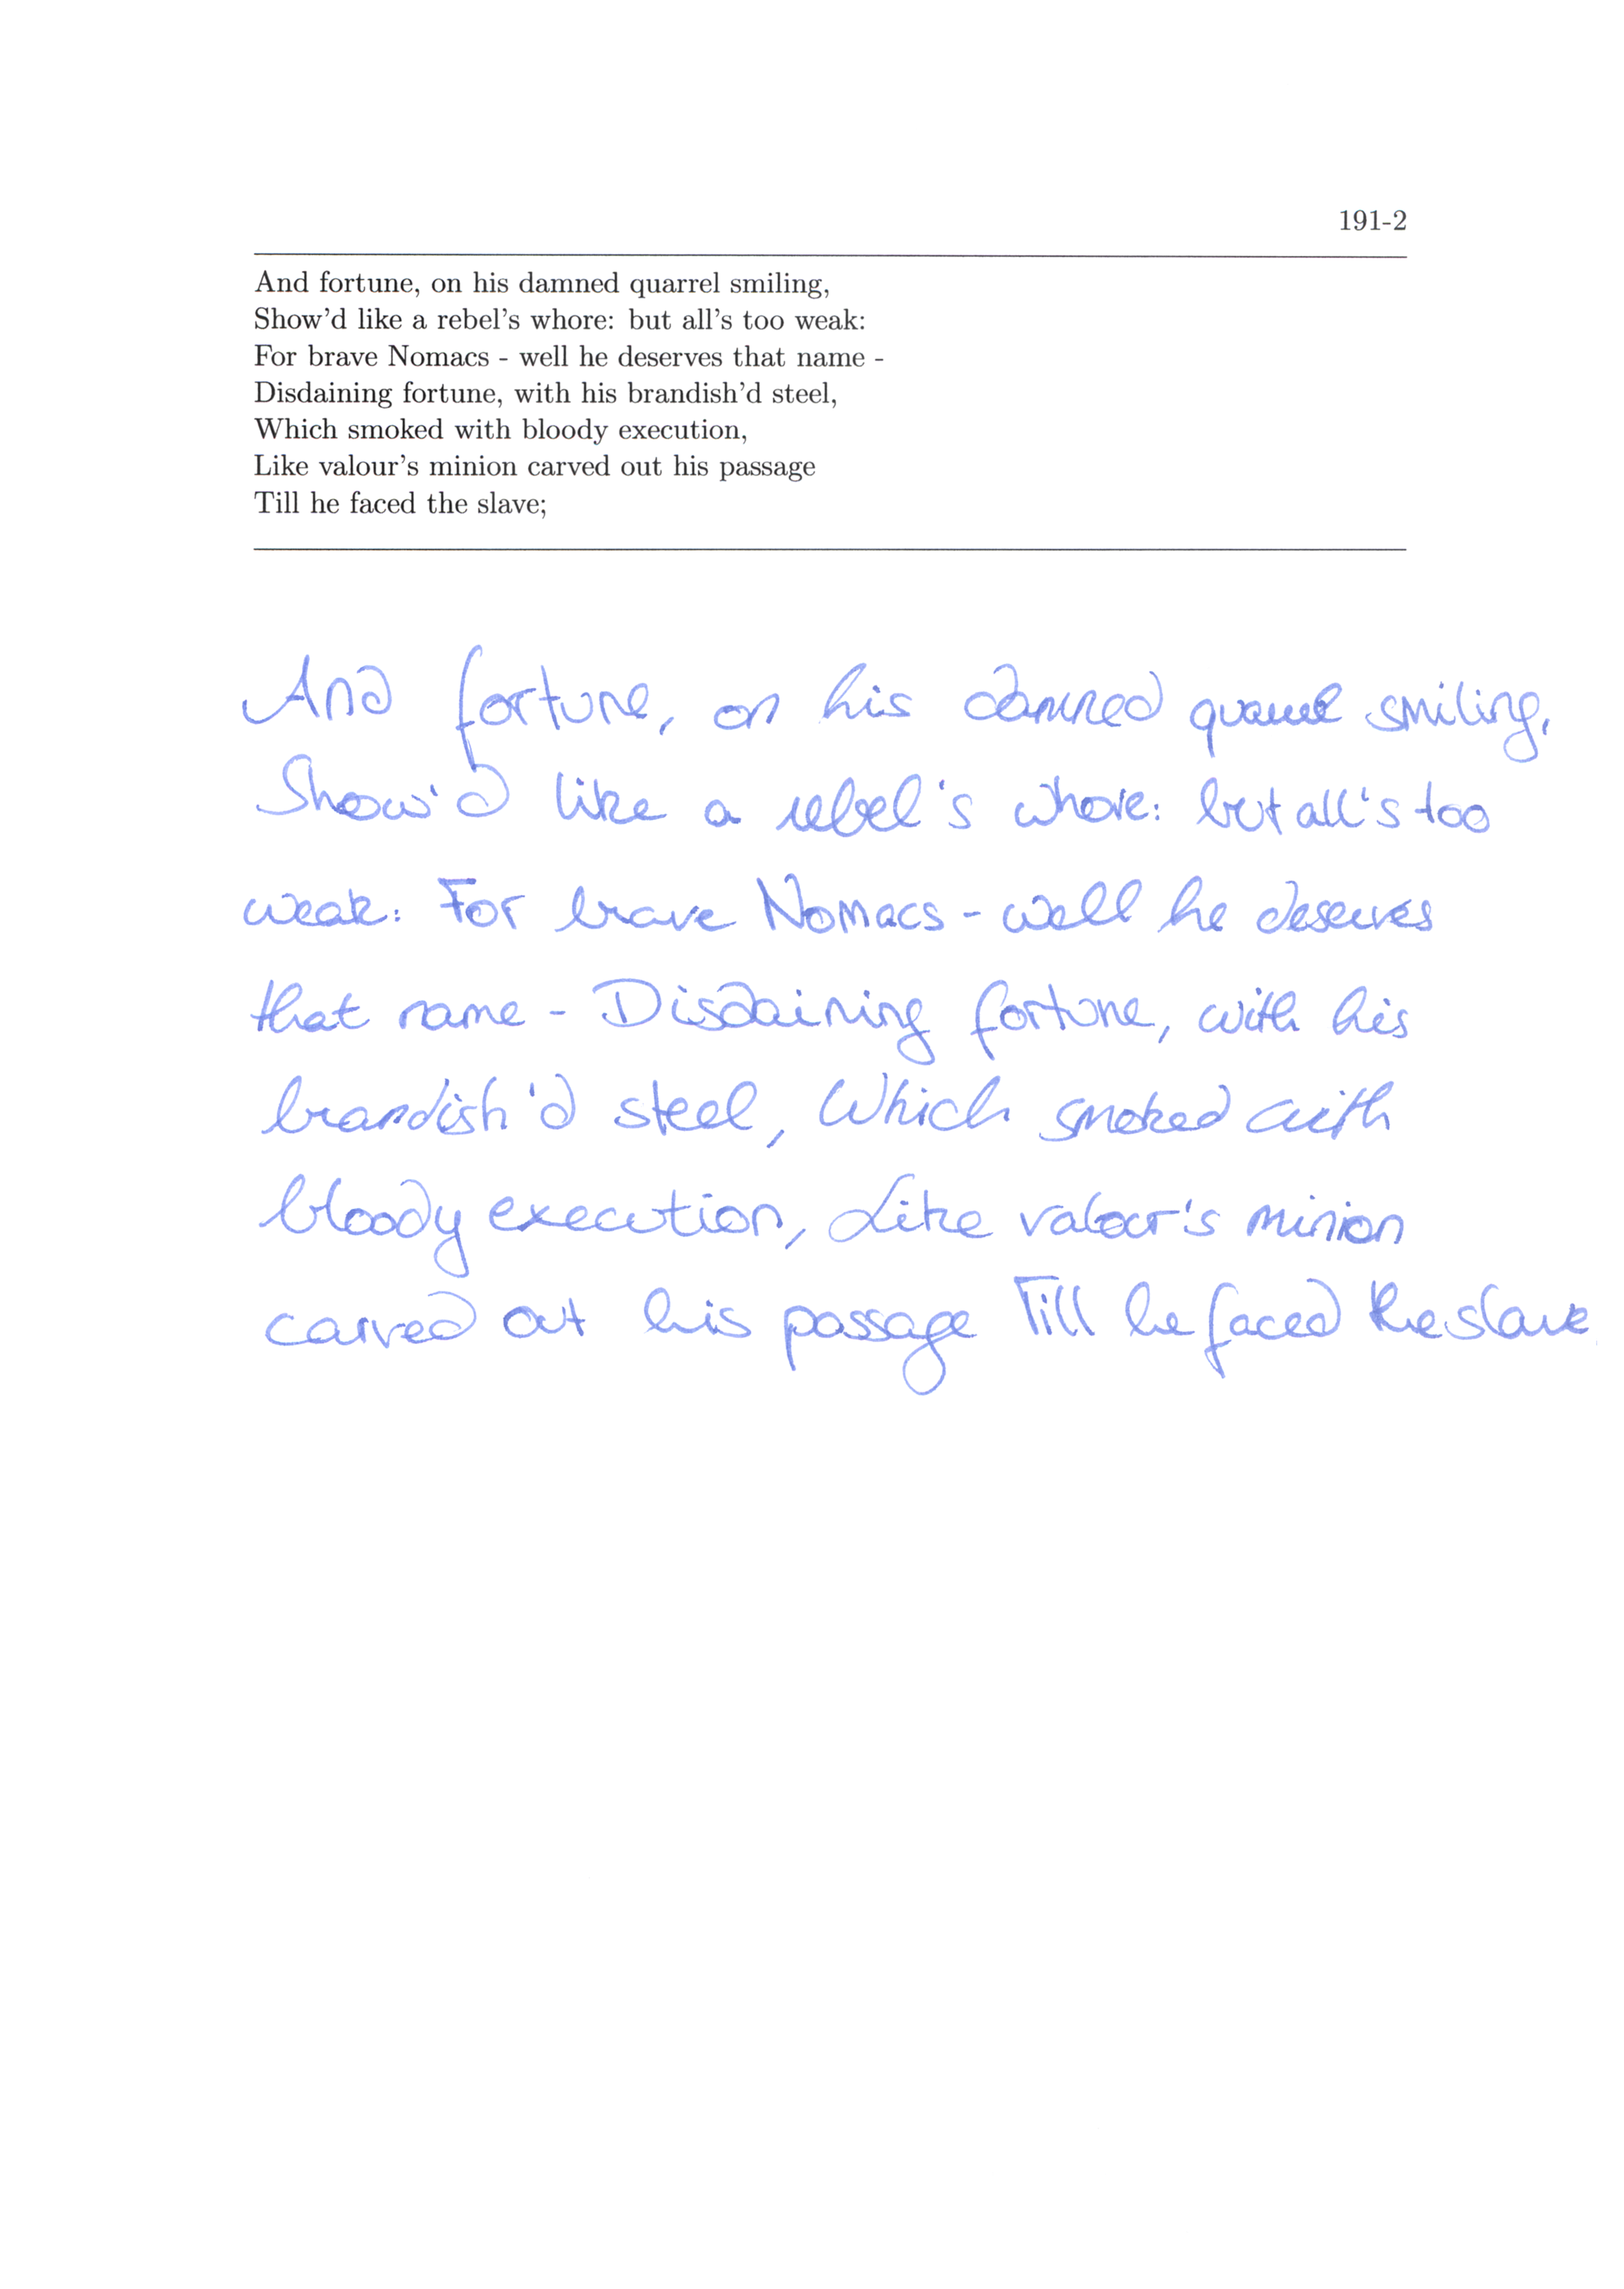 191-2
And fortune, on his damned quarrel smiling,
Show'd like a rebel's whore: but all's too weak:
For brave Nomacs - well he deserves that name -
Disdaining fortune, with his brandish'd steel,
Which smoked with bloody execution,
Like valour's minion carved out his passage
Till he faced the slave;
And fortune, on his damned quarrel smiling,
Show'd like a rebel's whore: but all's too
weak: For brave Nomacs - well he deserves
that name - Disdaining fortune, with his
brandish'd steel, Which smoked with
bloody execution, Like valour's minion
carved out his passage Till he faced the slave